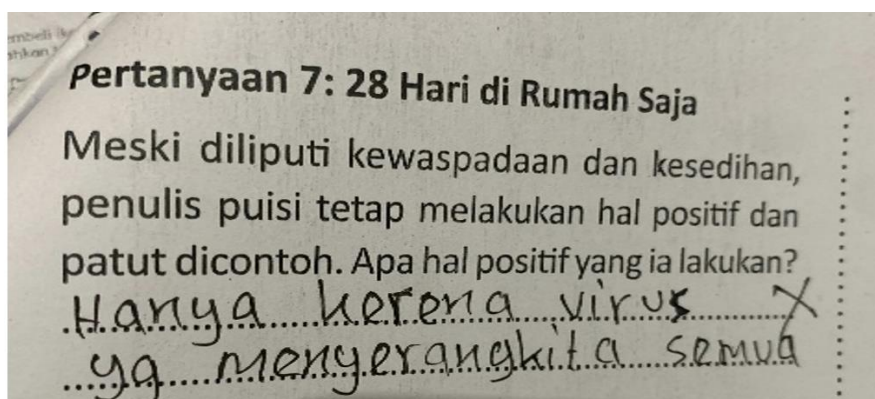 Pertanyaan 7: 28 Hari di Rumah Saja
Meski diliputi kewaspadaan dan kesedihan,
penulis puisi tetap melakukan hal positif dan
patut dicontoh. Apa hal positif yang ia lakukan?
Hanya kerena virus X
yg menyerangkita semua